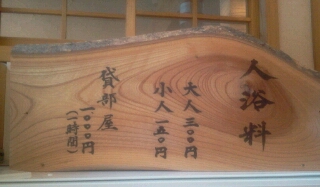 入浴料
大人 三〇〇円
小人 一五〇円
貸部屋
一〇〇〇円
(一時間)